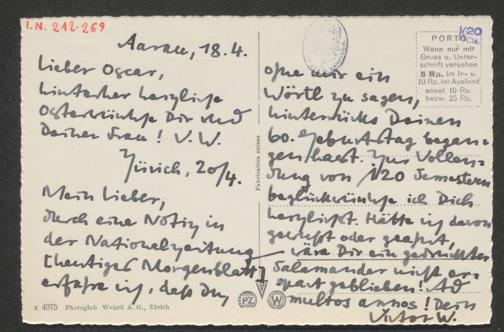 I.N. 212.269
Aarau, 18.4.
Lieber Oscar,
hinterher herzliche
Osterwünsche Dir und
Deiner Frau! V. W.
Zürich, 20/4.
Mein Lieber,
durch eine Notiz in
der Nationalzeitung
(heutiges Morgenblatt)
erfahre ich, daß Du
X 4075 Photoglob Wehrli A. G., Zürich
Fabrication suisse
PZ W
K20
PORTO
Wenn nur mit
Gruss u. Unter-
schrift versehen
5 Rp. im In- u.
10 Rp. im Ausland
sonst 10 Rp.
bezw. 25 Rp.
ohne mir ein
Wörtl zu sagen,
hinterrücks Deinen
60. Geburtstag began-
gen hast. Zur Vollen-
dung von 120 Semestern
beglückwünsche ich Dich
herzlichst. Hätte ich davon
gewußt oder geahnt,
wäre Dir ein gedruckter
Salamander nicht er-
spart geblieben! Ad
multos annos! Dein
Victor W.